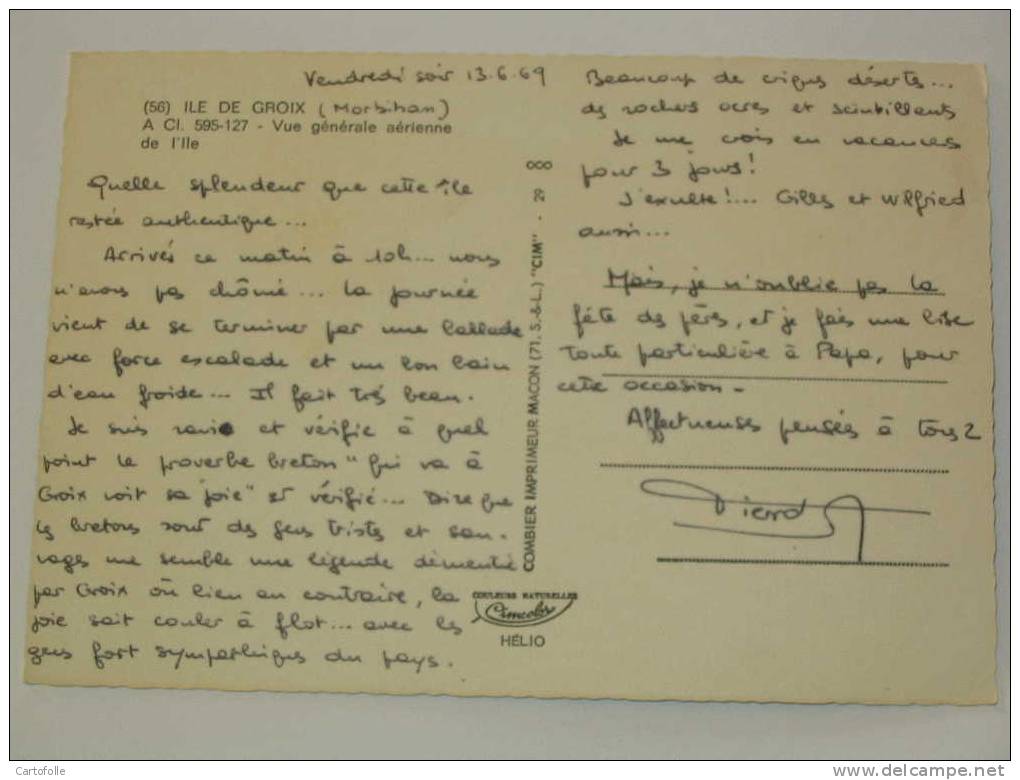 Vendredi soir 13.6.69
(56) ILE DE GROIX (Morbihan)
A CI. 595-127 - Vue générale aérienne
de l'Ile
Quelle splendeur que cette île
restée authentique...
Arrivés ce matin à 10h... nous
n'avons pas chômé... La journée
vient de se terminer par une ballade
avec force escalade et un bon bain
d'eau froide... Il fait très beau.
Je suis ravie et vérifie à quel
point le proverbe breton "Qui va à
Groix voit sa joie" est vérifié... Dire que
les bretons sont des gens tristes et sau-
vages me semble une légende démentie
par Groix où bien au contraire, la
joie sait couler à flot... avec les
gens fort sympathiques du pays.
COMBIER IMPRIMEUR MACON (71. S.-&-L.) "CIM" - 29
COULEURS NATURELLES
Cimcolor
HÉLIO
Beaucoup de criques désertes...
des rochers ocres et scintillants
Je me crois en vacances
pour 3 jours!
J'exulte!... Gilles et Wilfried
aussi...
Mais, je n'oublie pas la
fête des pères, et je fais une bise
toute particulière à Papa, pour
cette occasion -
Affectueuses pensées à tous 2
Cartofolle
http://www.delcampe.net